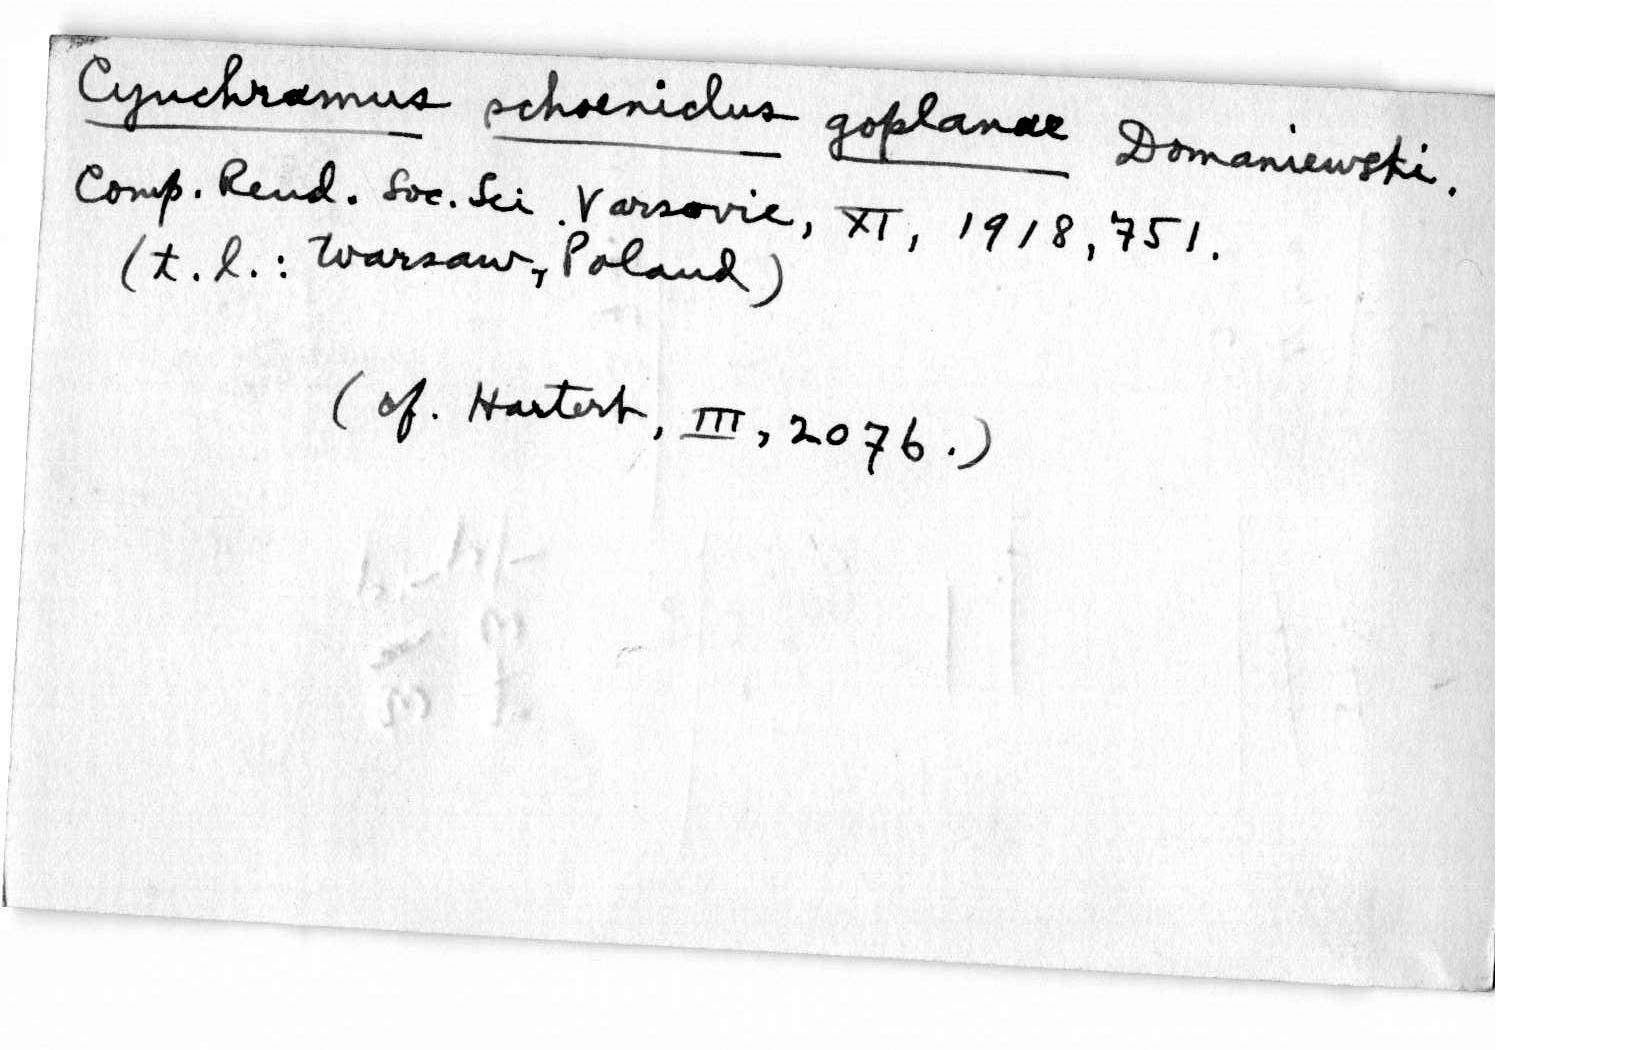 Cynchramus schoeniclus goplanae Domaniewski.
Comp. Rend. Soc. Sci. Varsovie, XI, 1918, 751.
(t.l.: Warsaw, Poland)
(cf. Hartert, III, 2076.)